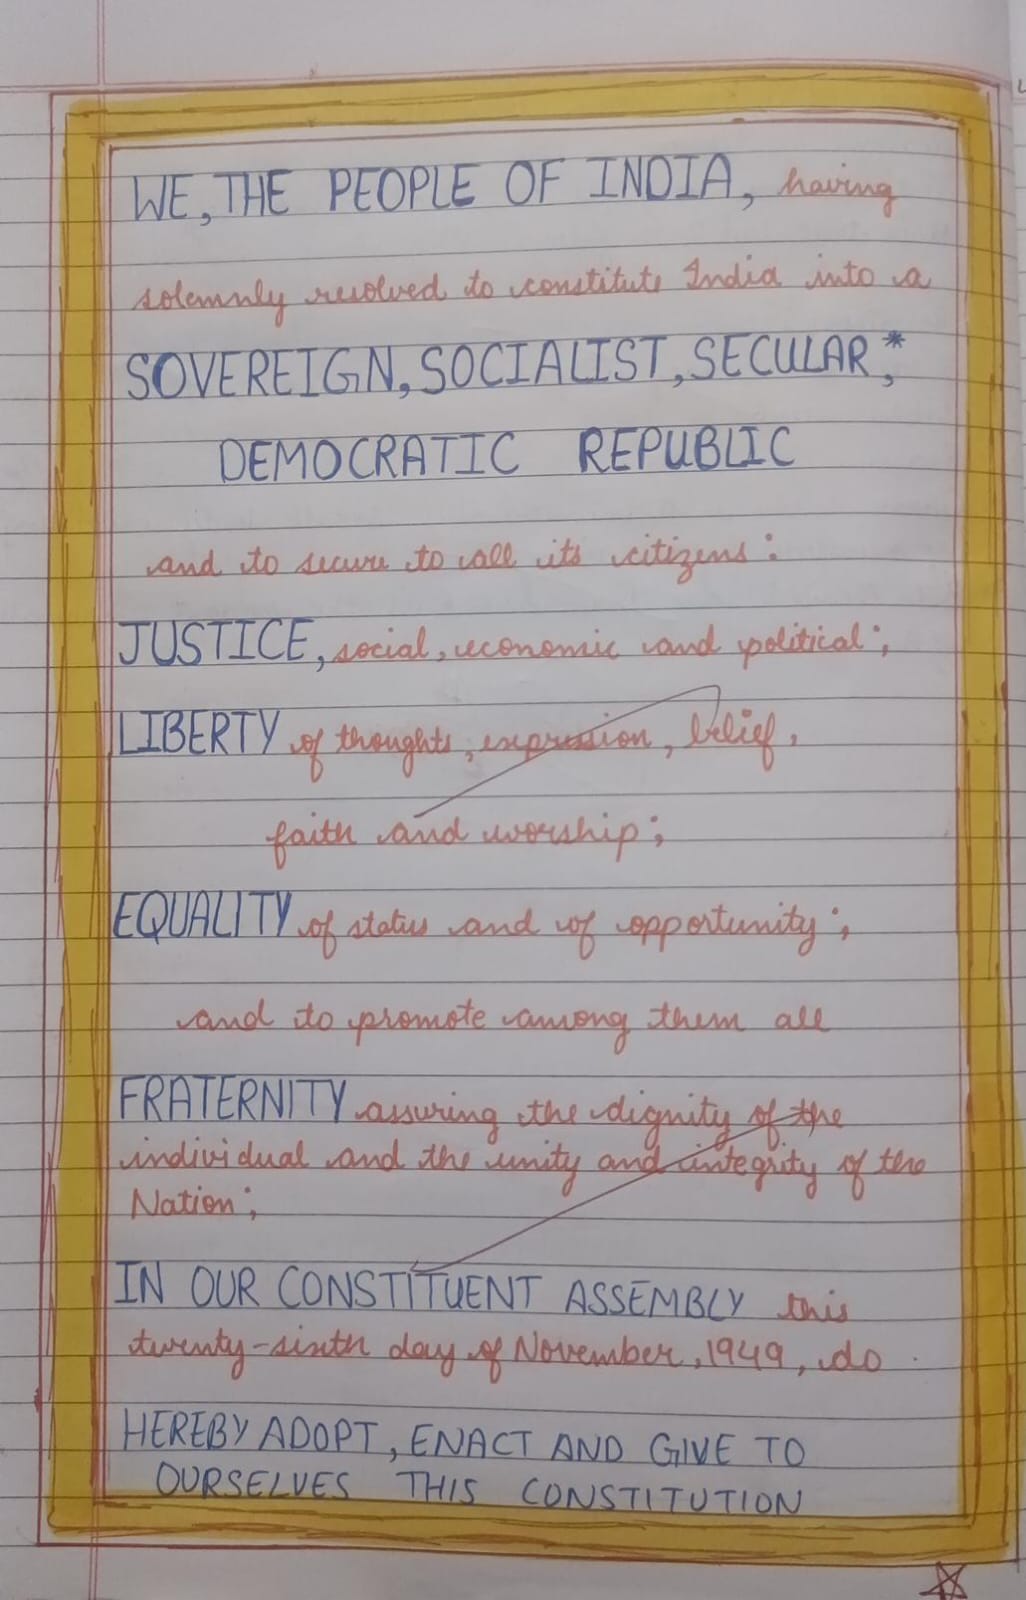 WE, THE PEOPLE OF INDIA, having
solemnly resolved to constitute India into a
SOVEREIGN, SOCIALIST, SECULAR,*
DEMOCRATIC REPUBLIC
and to secure to all its citizens:
JUSTICE, social, economic and political;
LIBERTY of thoughts, expression, belief,
faith and worship;
EQUALITY of status and of opportunity;
and to promote among them all
FRATERNITY assuring the dignity of the
individual and the unity and integrity of the
Nation;
IN OUR CONSTITUENT ASSEMBLY this
twenty-sixth day of November, 1949, do
HEREBY ADOPT, ENACT AND GIVE TO
OURSELVES THIS CONSTITUTION